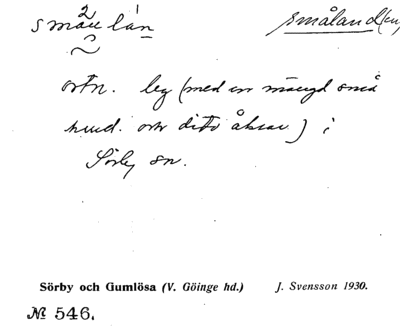 småu län småland(en)
ortn. beg (med en mängd små
hund. och dito åkrar) i
Sörby sn.
Sörby och Gumlösa (V. Göinge hd.) J. Svensson 1930.
№ 546.